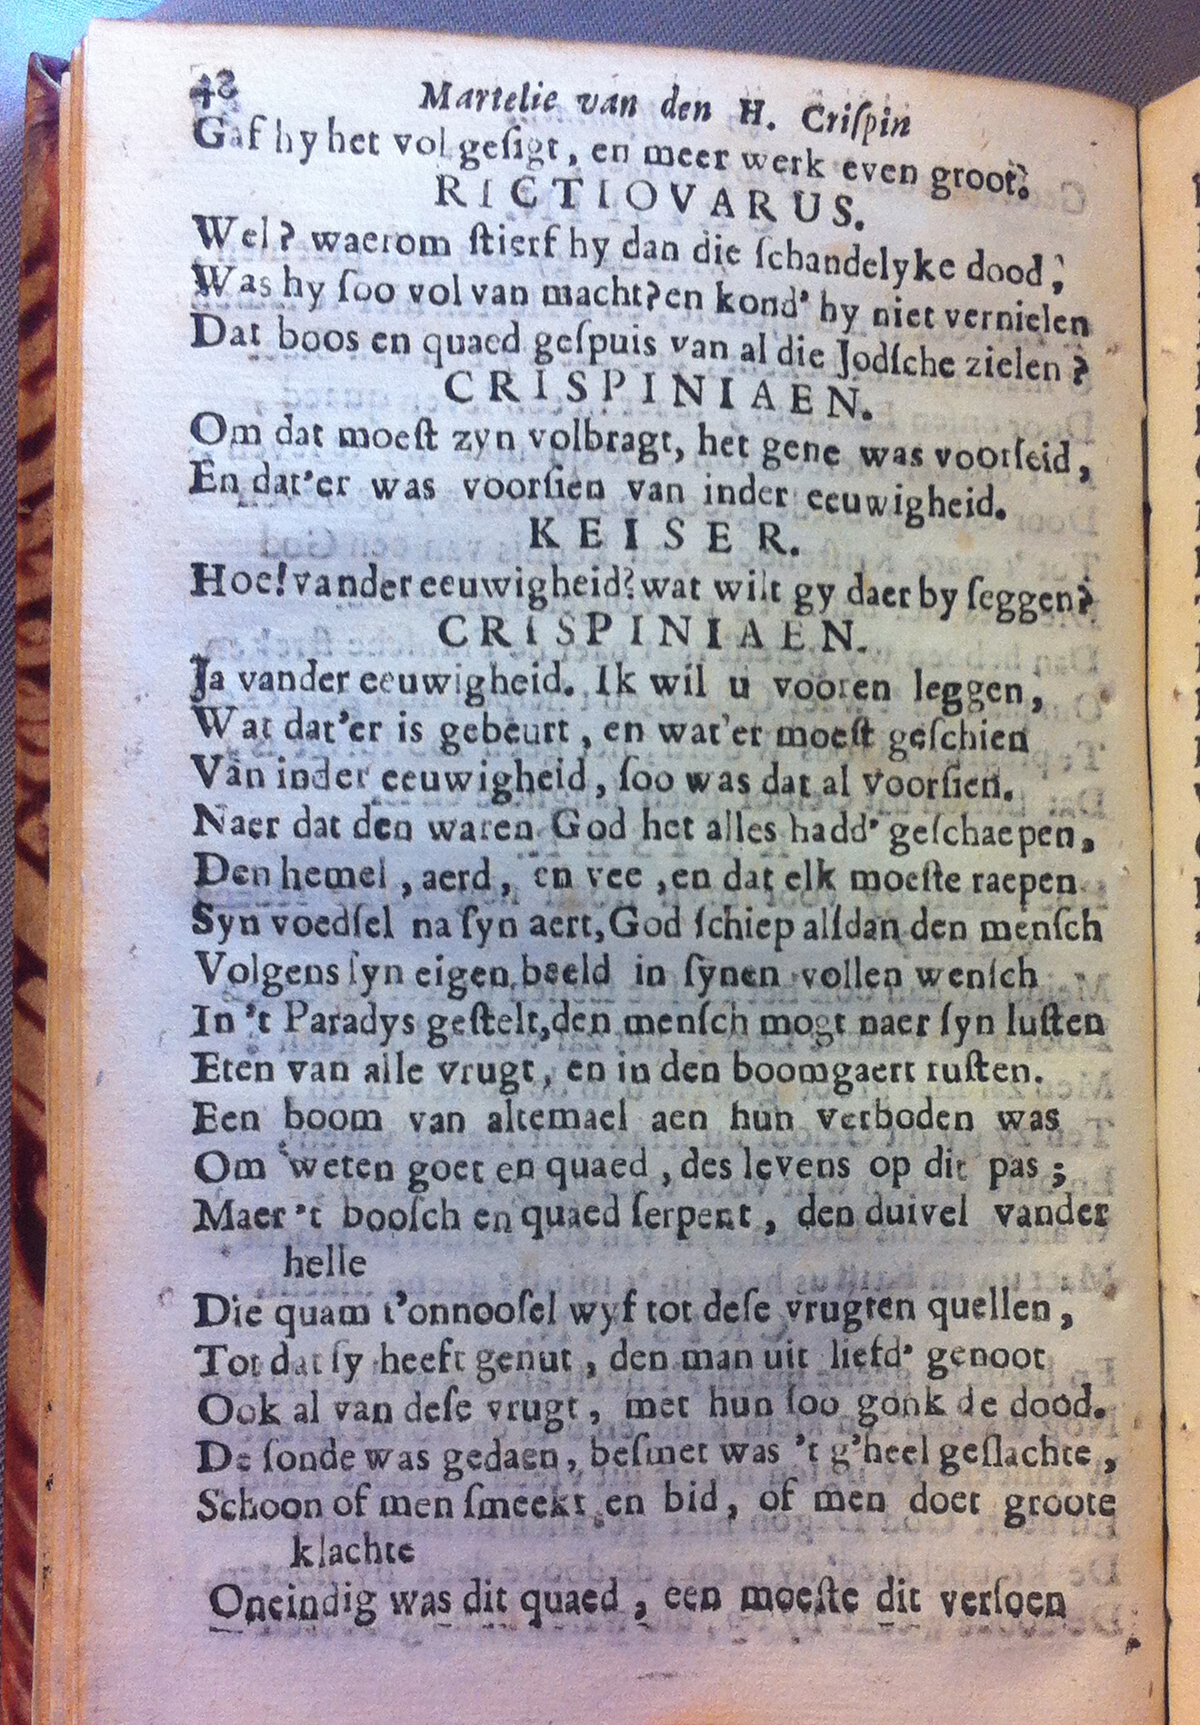 48 Martelie van den H. Criſpin
Gaf hy het vol geſigt, en meer werk even groot.
RICTIOVARUS.
Wel? waerom ſtierf hy dan die ſchandelyke dood,
Was hy ſoo vol van macht? en kond' hy niet vernielen
Dat boos en quaed geſpuis van al die Jodſche zielen?
CRISPINIAEN.
Om dat moeſt zyn volbragt, het gene was voorſeid,
En dat'er was voorſien van inder eeuwigheid.
KEISER.
Hoe! vander eeuwigheid? wat wilt gy daer by ſeggen?
CRISPINIAEN.
Ja vander eeuwigheid. Ik wil u vooren leggen,
Wat dat'er is gebeurt, en wat'er moeſt geſchien
Van inder eeuwigheid, ſoo was dat al voorſien.
Naer dat den waren God het alles hadd' geſchaepen,
Den hemel, aerd, en vee, en dat elk moeſte raepen
Syn voedſel na ſyn aert, God ſchiep alſdan den menſch
Volgens ſyn eigen beeld in ſynen vollen wenſch
In 't Paradys geſtelt, den menſch mogt naer ſyn luſten
Eten van alle vrugt, en in den boomgaert ruſten.
Een boom van altemael aen hun verboden was
Om weten goet en quaed, des levens op dit pas;
Maer 't booſch en quaed ſerpent, den duivel vander
helle
Die quam t'onnooſel wyf tot deſe vrugten quellen,
Tot dat ſy heeft genut, den man uit liefd' genoot
Ook al van deſe vrugt, met hun ſoo gonk de dood.
De ſonde was gedaen, beſmet was 't g'heel geſlachte,
Schoon of men ſmeekt en bid, of men doet groote
klachte
Oneindig was dit quaed, een moeſte dit verſoen